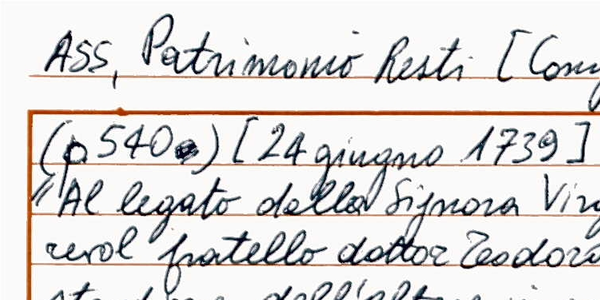 ASS, Patrimonio Resti [Com
(p 540) [24 giugno 1739]
"Al legato della Signora Virg
revol fratello dottor Teodoro
dell'altra